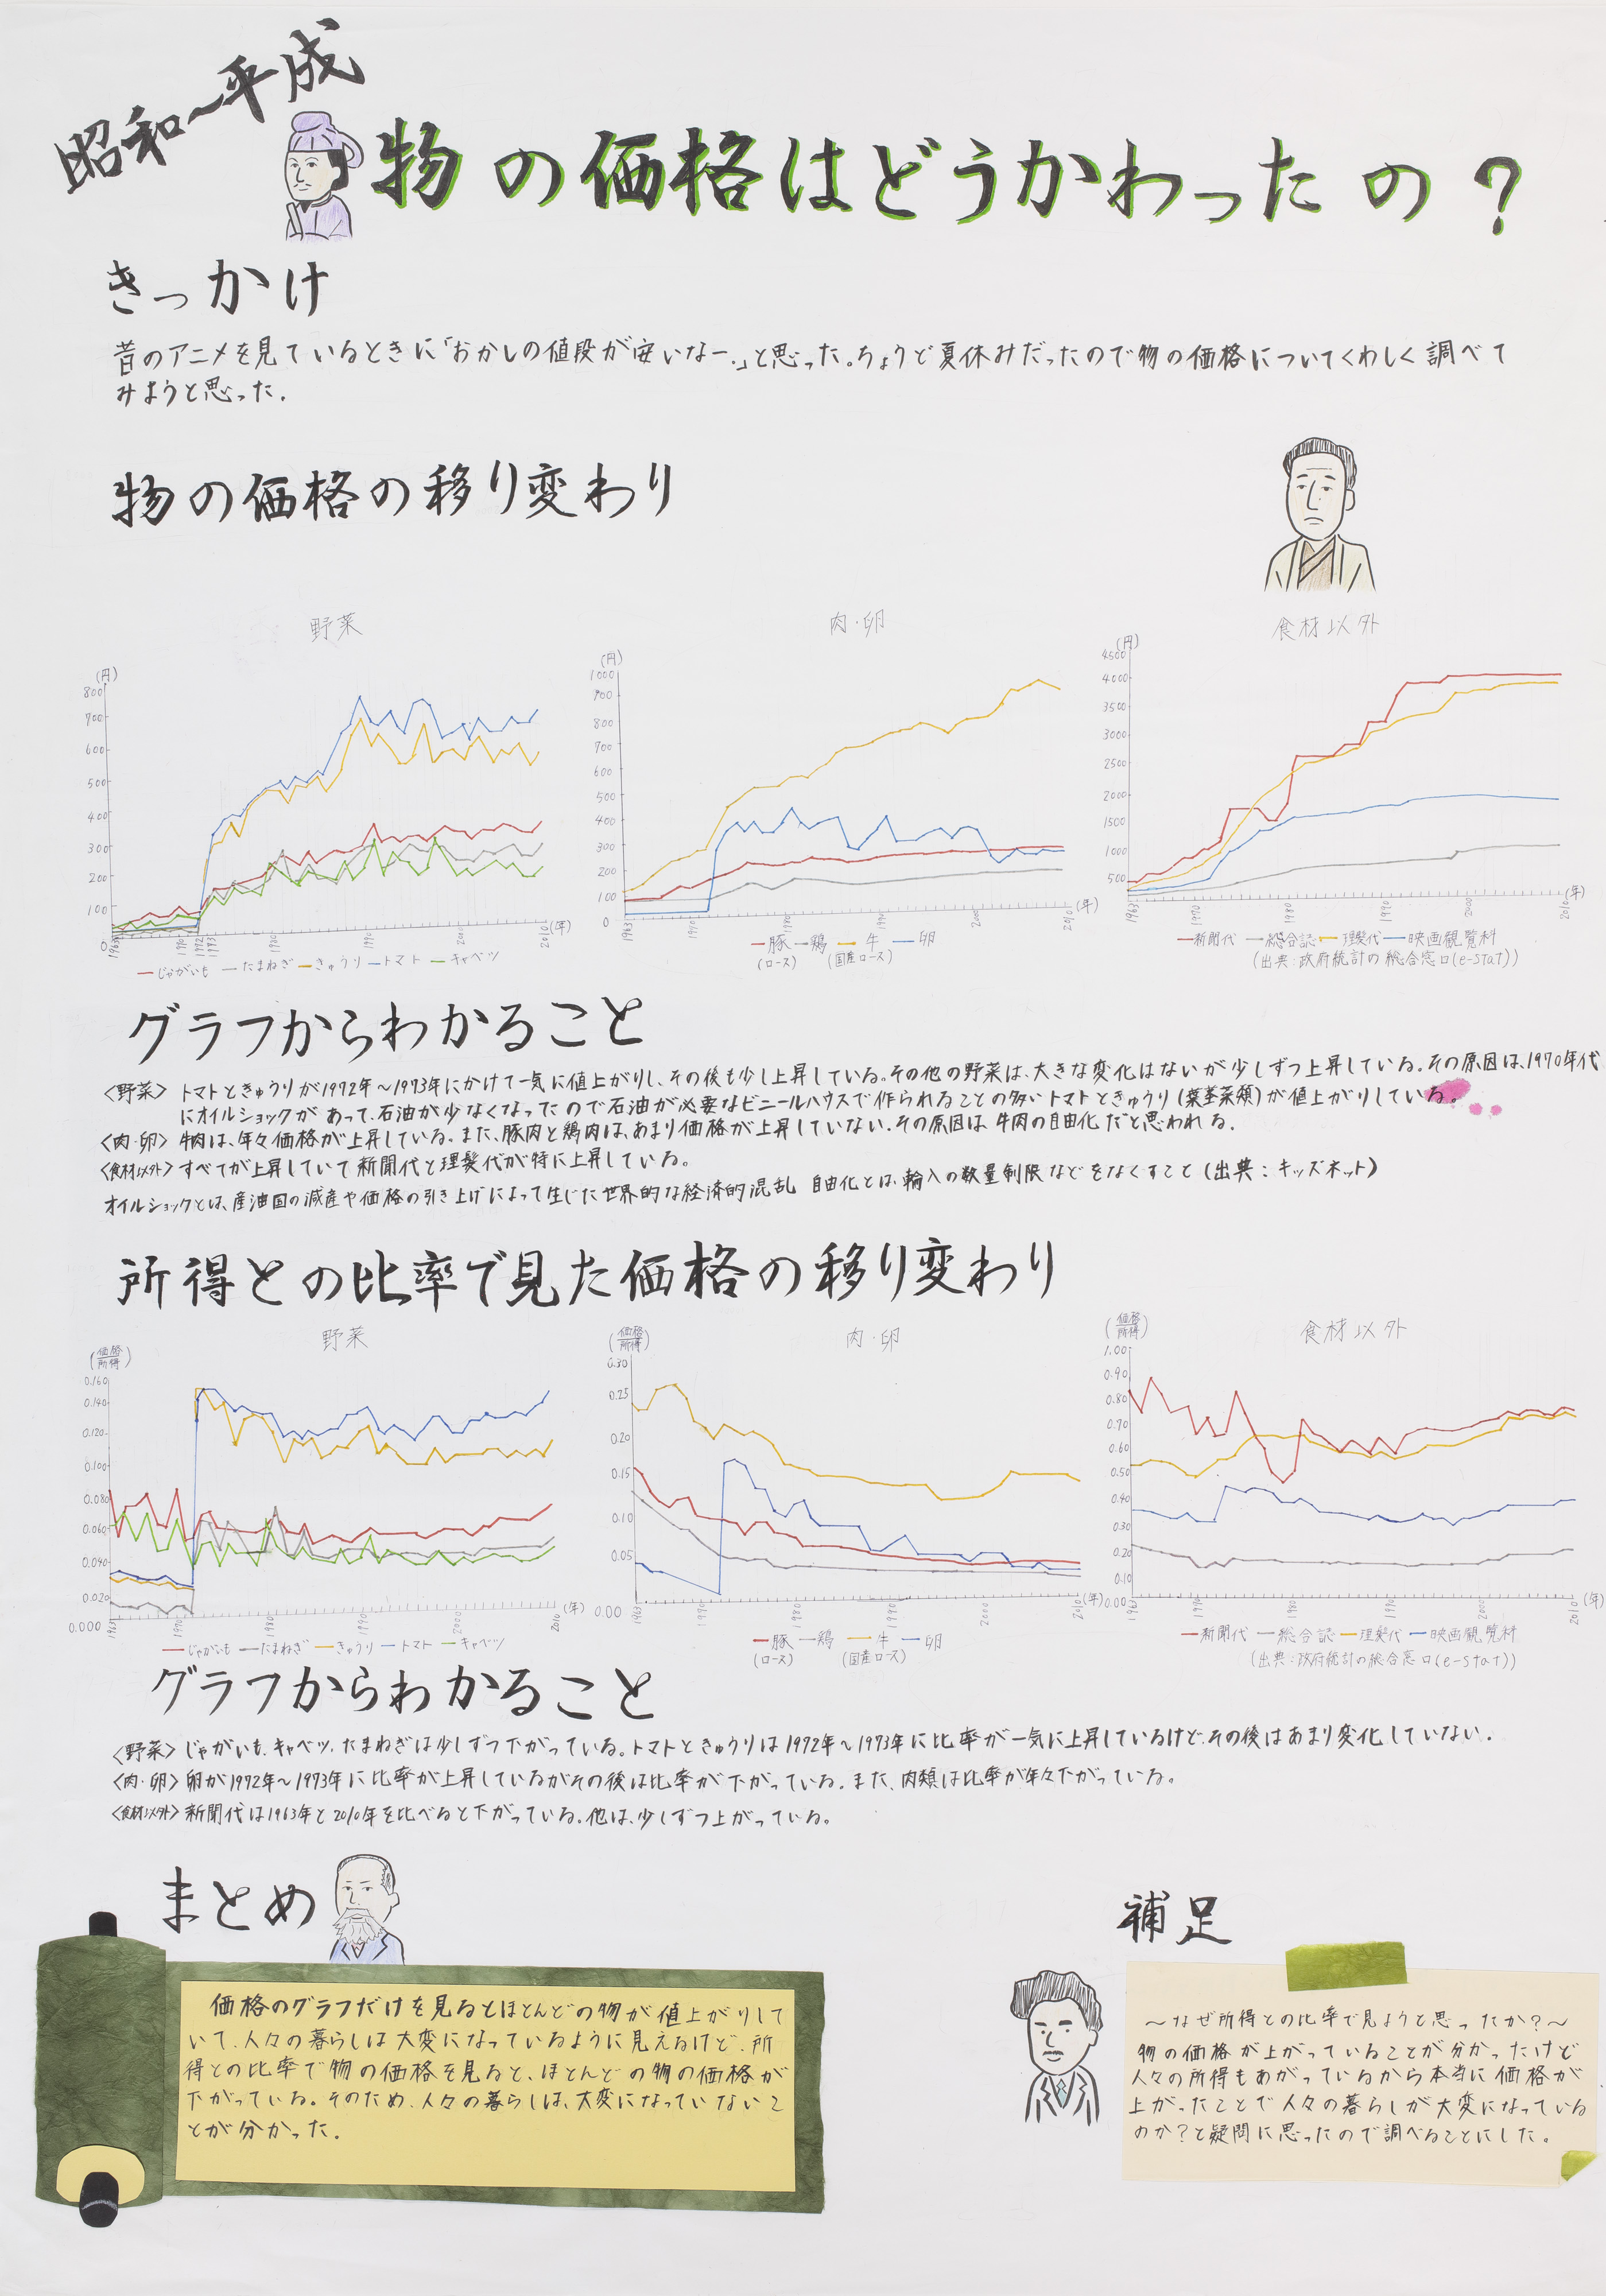 昭和〜平成
物の価格はどうかわったの？
きっかけ
昔のアニメを見ているときに「おかしの値段が安いなー。」と思った。ちょうど夏休みだったので物の価格についてくわしく調べて
みようと思った。
物の価格の移り変わり
野菜
(円)
800
700
600
500
400
300
200
100
0
1963 1970 1972 1973 1980 1990 2000 2010 (年)
じゃがいも たまねぎ きゅうり トマト キャベツ
肉・卵
(円)
1000
900
800
700
600
500
400
300
200
100
0
1963 1970 1980 1990 2000 2010 (年)
豚 鶏 牛 卵
(ロース) (国産ロース)
食材以外
(円)
4500
4000
3500
3000
2500
2000
1500
1000
500
1963 1970 1980 1990 2000 2010 (年)
新聞代 総合誌 理髪代 映画観覧料
(出典：政府統計の総合窓口(e-stat))
グラフからわかること
〈野菜〉 トマトときゅうりが1972年〜1973年にかけて一気に値上がりし、その後も少し上昇している。その他の野菜は、大きな変化はないが少しずつ上昇している。その原因は、1970年代
にオイルショックがあって、石油が少なくなったので石油が必要なビニールハウスで作られることの多いトマトときゅうり(葉茎菜類)が値上がりしている。
〈肉・卵〉 牛肉は、年々価格が上昇している。また、豚肉と鶏肉は、あまり価格が上昇していない。その原因は、牛肉の自由化だと思われる。
〈食材以外〉 すべてが上昇していて新聞代と理髪代が特に上昇している。
オイルショックとは、産油国の減産や価格の引き上げによって生じた世界的な経済的混乱 自由化とは、輸入の数量制限などをなくすこと(出典：キッズネット)
所得との比率で見た価格の移り変わり
野菜
(価格/所得)
0.160
0.140
0.120
0.100
0.080
0.060
0.040
0.020
0.000
1963 1970 1980 1990 2000 2010 (年)
じゃがいも たまねぎ きゅうり トマト キャベツ
肉・卵
(価格/所得)
0.30
0.25
0.20
0.15
0.10
0.05
0.00
1963 1970 1980 1990 2000 2010 (年)
豚 鶏 牛 卵
(ロース) (国産ロース)
食材以外
(価格/所得)
1.00
0.90
0.80
0.70
0.60
0.50
0.40
0.30
0.20
0.10
0.00
1963 1970 1980 1990 2000 2010 (年)
新聞代 総合誌 理髪代 映画観覧料
(出典：政府統計の総合窓口(e-stat))
グラフからわかること
〈野菜〉 じゃがいも、キャベツ、たまねぎは少しずつ下がっている。トマトときゅうりは1972年〜1973年に比率が一気に上昇しているけど、その後はあまり変化していない。
〈肉・卵〉 卵が1972年〜1973年に比率が上昇しているがその後は比率が下がっている。また、肉類は比率が年々下がっている。
〈食材以外〉 新聞代は1963年と2010年を比べると下がっている。他は、少しずつ上がっている。
まとめ
価格のグラフだけを見るとほとんどの物が値上がりして
いて、人々の暮らしは大変になっているように見えるけど、所
得との比率で物の価格を見ると、ほとんどの物の価格が
下がっている。そのため、人々の暮らしは、大変になっていないこ
とが分かった。
補足
〜なぜ所得との比率で見ようと思ったか？〜
物の価格が上がっていることが分かったけど
人々の所得もあがっているから本当に価格が
上がったことで人々の暮らしが大変になっている
のか？と疑問に思ったので調べることにした。